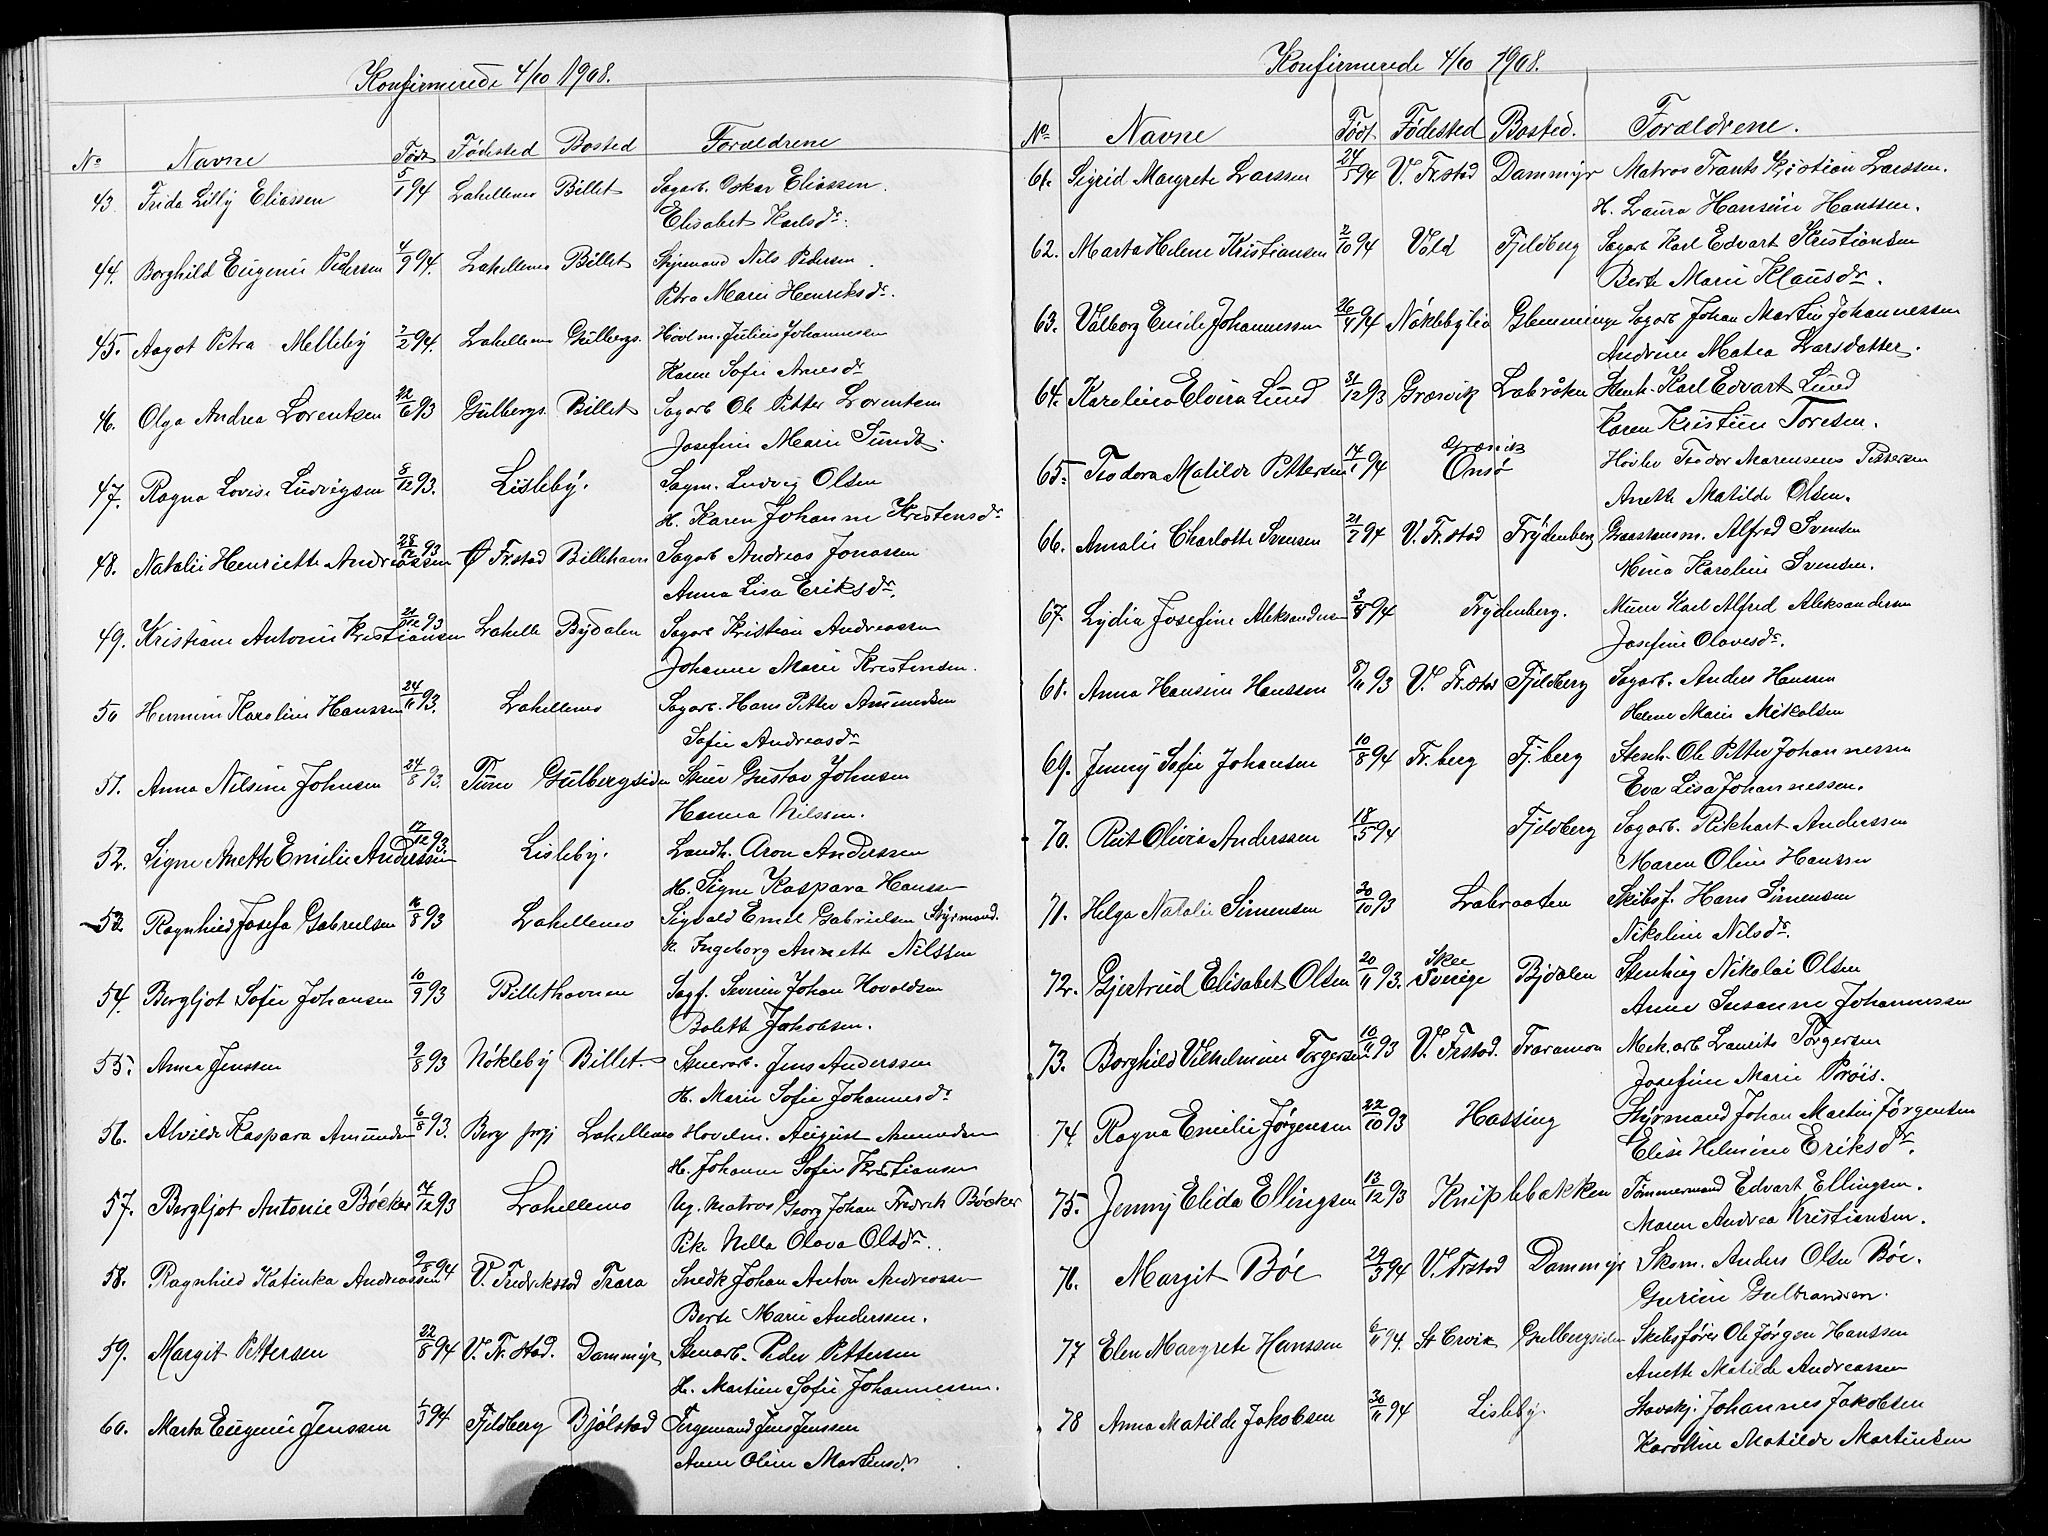 Konfirmerede 4/10 1908.
No Navne Født Fødested Bosted Forældrene
43. Frida Lilly Eliassen 5/1 94 Lahellemo Billet Sagarb. Oskar Eliassen.
Elisabet Karlsdr.
44. Borghild Eugenie Pedersen 4/9 94. Lahellemo Billet Styrmand Nils Pedersen.
Petra Marie Henriksdr.
45. Aagot Petra Melleby 7/2 94. Lahellemo Gulbergs. Hovlm. Julius Johannessen
Karen Sofie Arnesdr
46. Olga Andrea Lorentsen 22/6 93 Gulbergs. Billet Sagarb Ole Petter Lorentsen
Josefine Marie Sundt.
47. Ragna Lovise Ludvigsen 8/12 93. Lisleby. Sagm. Ludvig Olsen
H. Karen Johanne Kristensdr
48. Natalie Henriette Andreassen 28/12 93 Ø Fr.stad Billethavn Sagarb Andreas Jonassen
Anna Lisa Eriksdr.
49. Kristiane Antonie Kristiansen 21/12 93 Lahelle Bydalen Sagarb Kristian Andreassen
Johanne Marie Kristensen.
50 Hermine Karoline Hanssen 24/11 93. Lahellemo Sagarb. Hans Petter Amundsen
Sofie Andreasdr
51. Anna Nilsine Johnsen 24/8 93. Tune Gulbergsiden Stuer Gustav Johnsen
Hanna Nilssen.
52. Signe Anette Emilie Anderssen 17/12 93. Lisleby. Landh. Aron Anderssen
H. Signe Kaspara Hanssen
53. Ragnhild Josefa Gabrielsen 16/8 93 Lahellemo Sigvald Emil Gabrielsen Styrmand.
H. Ingeborg Annette Nilssen
54. Bergljot Sofie Johansen 10/9 93 Billethavnen Sagf. Severin Johan Hovaldsen
Bolette Jakobsen.
55. Anna Jenssen 9/8 93 Nøkleby Billet. Stuerarb. Jens Anderssen
H. Marie Sofie Johannesdr
56. Alvilde Kaspara Amundsen 6/8 93. Berg prgj Lahellemo Hovelm. August Amundsen
H. Johanne Sofie Kristiansen
57. Bergljot Antonie Böcker 17/12 93 Lahellemo Ug. Matros Georg Johan Fredrik Böcker
Pike Nella Olava Olsdr.
58. Ragnhild Katinka Andreassen 9/8 94 V. Fredrikstad Trara Snedk Johan Anton Andreassen
Berte Marie Anderssen.
59. Margit Pettersen 22/8 94 V. Fr.stad. Dammyr Stenarb. Peder Pettersen
H. Martine Sofie Johannessen.
60. Marta Eugenie Jenssen 1/3 94 Fjeldberg Bjølstad Færgemand Jens Jenssen
Anne Oline Martinsdr.
Konfirmerede 4/10 1908.
No Navne Født. Fødested Bosted. Forældrene.
61. Sigrid Margrete Larssen 24/5 94 V. Fr.stad Dammyr Matros Frants Kristian Larssen.
H. Laura Hansine Hanssen.
62. Marta Helene Kristiansen 2/10 94 Vold Fjeldberg Sagarb Karl Edvart Kristiansen
Berte Marie Klausdr.
63. Valborg Emilie Johannessen 26/4 94 Nøklebylia Glemminge Sagarb Johan Martin Johannessen
Andrine Matea Larsdatter.
64. Karolina Elvira Lund 31/12 93 Græsvik Labråten Stenh. Karl Edvart Lund
Karen Kristine Toresen.
65. Teodora Matilde Pettersen 14/1 94 Græsvik Onsø Høvler Teodor Marensius Pettersen
Anette Matilde Olsen.
66. Amalie Charlotte Svensen 21/7 94 V. Fr.stad Frydenberg Graastensm. Alfred Svensen
Mina Karoline Svensen.
67. Lydia Josefine Aleksandersen 3/8 94 Frydenberg. Murer Karl Alfred Aleksandersen
Josefine Olavesdr.
68. Anna Hansine Hanssen 8/11 93 V. Fr.stad Fjeldberg Sagarb. Anders Hanssen
Helene Marie Mikalsen
69. Jenny Sofie Johansen 10/8 94 Fr.berg Fj.berg Stenh. Ole Petter Johannessen
Eva Lisa Johannessen.
70. Rut Olivia Anderssen 18/5 94 Fjeldberg Sagarb. Rikhart Anderssen
Maren Oline Hanssen
71. Helga Natalie Simensen 30/10 93 Labraaten Skibsf. Hans Simensen
Nikoline Nilsdr.
72. Gjertrud Elisabet Olsen 20/11 93. Skee Sverige Bydalen Stenhug Nikolai Olsen
Anne Susanne Johannessen
73. Borghild Vilhelmine Torgersen 10/11 93 V. Frstad. Traramoa Mek. arb Laurits Torgersen
Josefine Marie Prøis.
74. Ragna Emilie Jørgensen 22/10 93 Hassing Styrmand Johan Martin Jørgensen
Elise Helmine Eriksdr.
75. Jenny Elida Ellingsen 13/12 93 Kniplebakken Tømmermand Edvart Ellingsen.
Maren Andrea Kristiansen.
76. Margit Bøe 29/3 94 V. Frstad Dammyr Skom. Anders Olsen Bøe.
Gurine Gulbrandsen.
77 Elen Margrete Hanssen 6/11 94. St Croix Gulbergsiden Skibsfører Ole Jørgen Hanssen
Anette Matilde Andreassen
78 Anna Matilde Jakobsen 30/11 94 Lisleby. Stavskj. Johannes Jakobsen
Karoline Matilde Martinsen